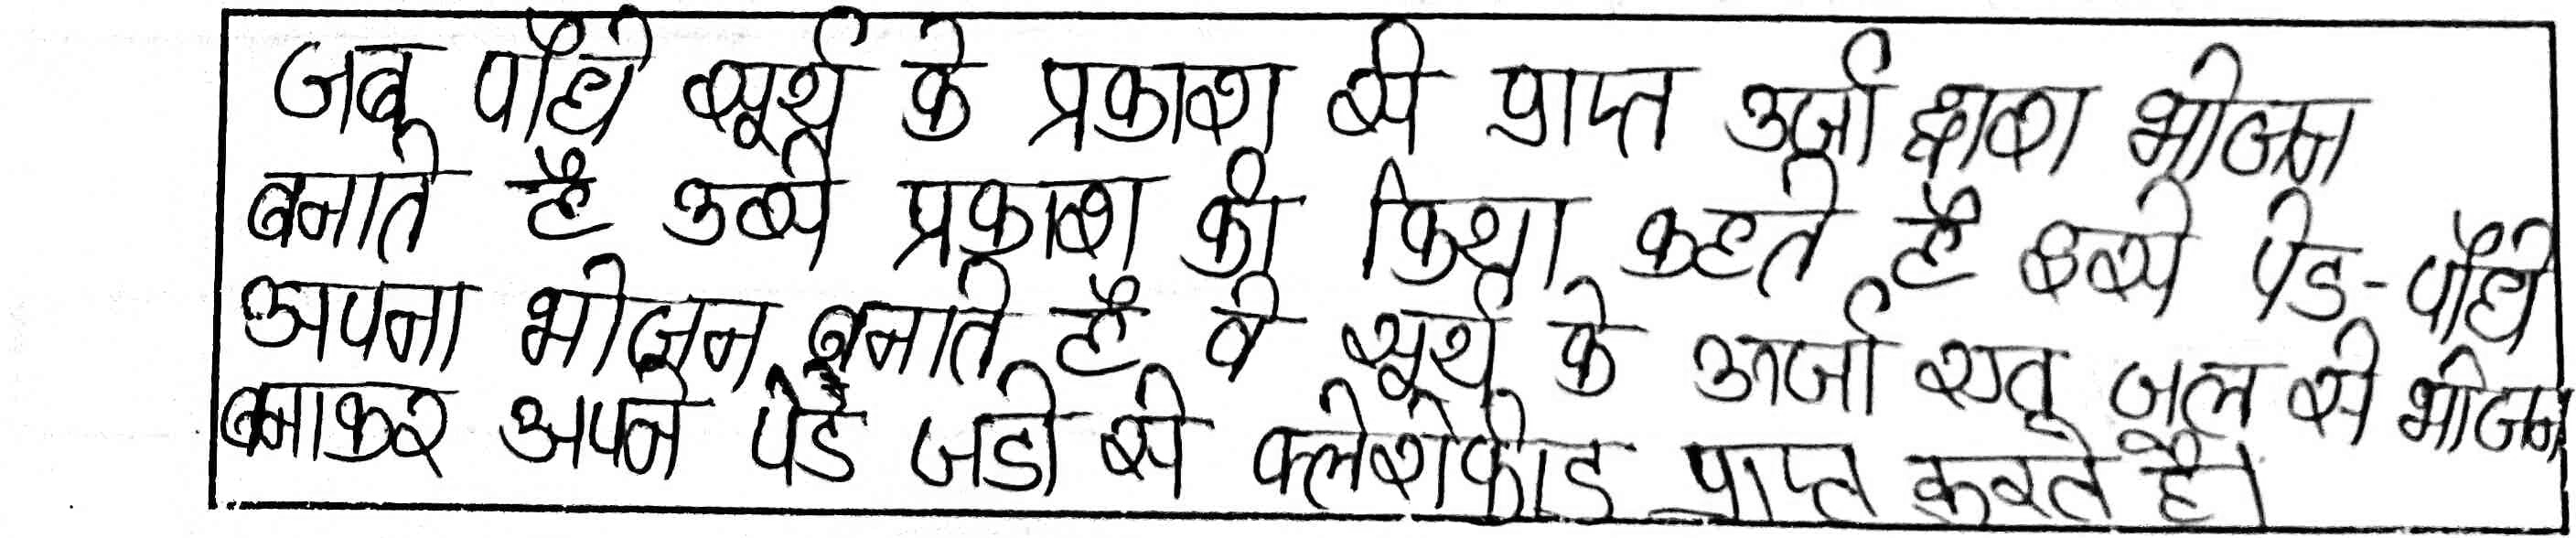 जब पौधे सूर्य के प्रकाश से प्राप्त उर्जा द्वारा भोजन
बनाते है उसे प्रकाश की क्रिया कहते है इसे पेड-पौधे
अपना भोजन बनाते है वे सूर्य के ऊर्जा एवं जल से भोजन
बनाकर अपने पेड जडो से क्लेरोफीड प्राप्त करते है।